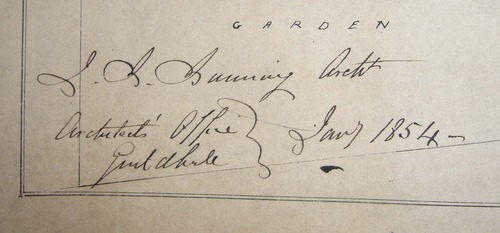 GARDEN
J. B. Bunning Archt
Architects' Office
Guildhall
Jany 1854